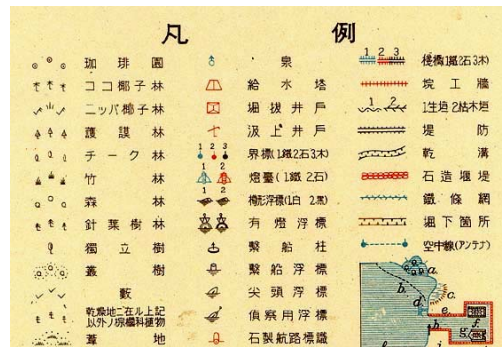 凡例
珈琲園
ココ椰子林
ニッパ椰子林
護謨林
チーク林
竹林
森林
針葉樹林
獨立樹
叢樹
藪
乾燥地ニ在ル上記
以外ノ棕櫚科植物
葦地
泉
給水塔
堀拔井戸
汲上井戸
1 2 3
界標(1.鐵2.石3.木)
1 2
燈臺(1.鐵 2.石)
1 2
樽浮標(1.白 2.黒)
1 2
有燈浮標
繫船柱
繫船浮標
尖頭浮標
偵察用浮標
石製航路標識
1 2 3
棧橋1.鐵2.石3.木)
煉工牆
1 2
1.生垣 2.結木垣
堤防
乾溝
石造堰堤
鐵條網
堀下箇所
空中線(アンテナ)
a.
b.
c.
d.
e.
f.
g.
h.
i.
l.